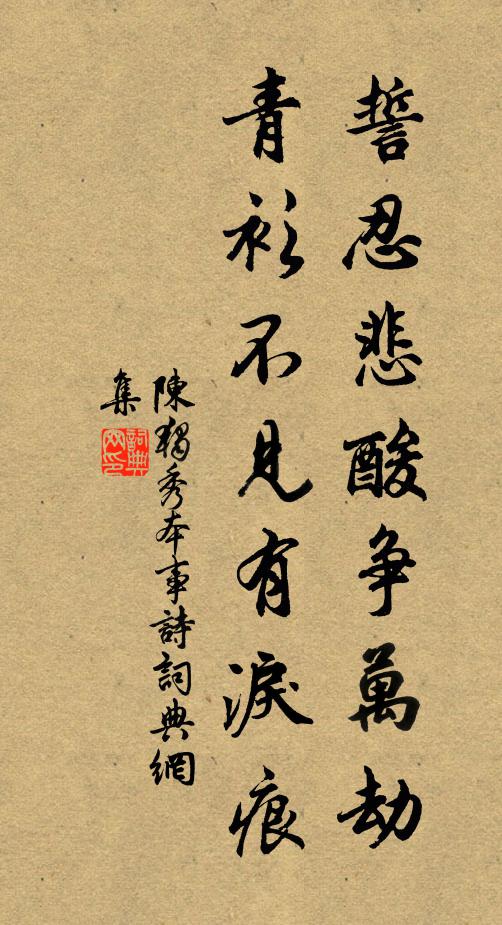 誓忍悲酸爭萬劫
青衫不見有淚痕
陳獨秀本事詩詞典網
集
詞典網印